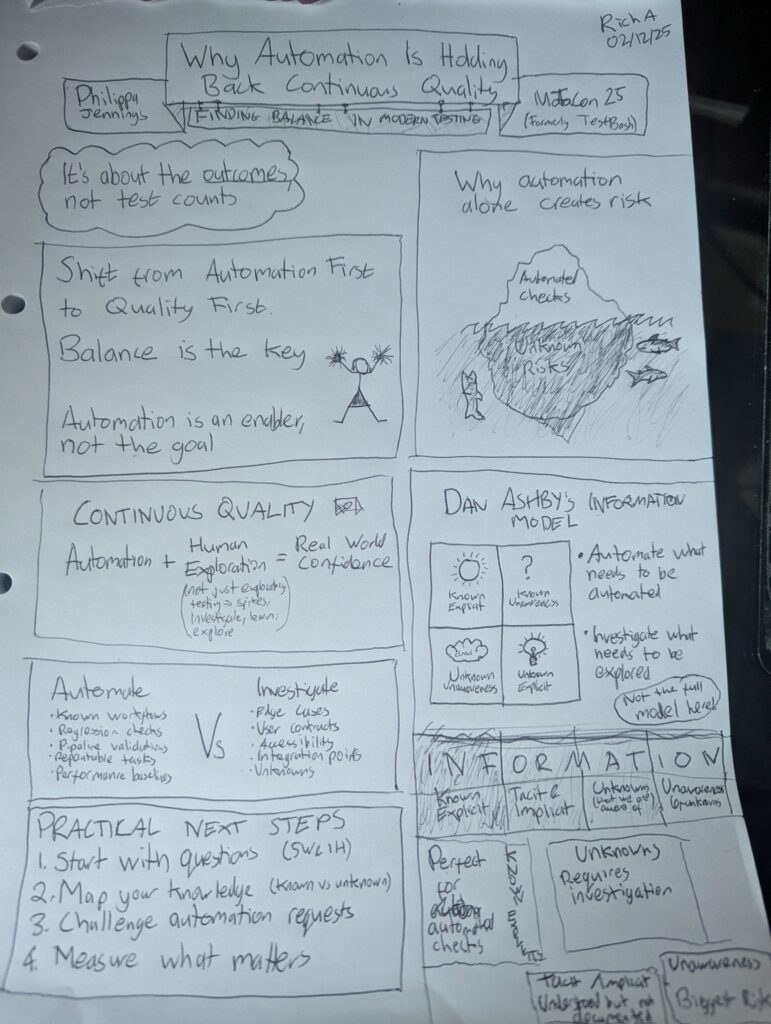 Rich A
02/12/25
Why Automation Is Holding
Back Continuous Quality
Philippa
Jennings
FINDING BALANCE IN MODERN TESTING
MoTaCon 25
(Formerly TestBash)
It's about the outcomes,
not test counts
Why automation
alone creates risk
Automated
checks
Unknown
Risks
Shift from Automation First
to Quality First.
Balance is the key
Automation is an enabler,
not the goal
CONTINUOUS QUALITY
Automation + Human Exploration = Real World Confidence
(not just exploratory
testing → spikes,
investigate, learn,
explore
DAN ASHBY'S INFORMATION
MODEL
Known
Explicit
?
Known
Unawareness
Unknown
Unawareness
Unknown
Explicit
• Automate what
needs to be
automated
• Investigate what
needs to be
explored
Not the full
model here!
Automate
• Known workflows
• Regression checks
• Pipeline validations
• Repeatable tasks
• Performance baselines
Vs
Investigate
• Edge cases
• User contracts
• Accessibility
• Integration points
• Unknowns
INFORMATION
Known
Explicit
Tacit &
Implicit
Unknowns
(that we are
aware of)
Unawareness
PRACTICAL NEXT STEPS
1. Start with questions (5W1H)
2. Map your knowledge (known vs unknown)
3. Challenge automation requests
4. Measure what matters
Perfect
for
automated
checks
Unknowns
Requires
investigation
Tacit / Implicit
Understood but not
documented
Unawareness
Biggest Risk